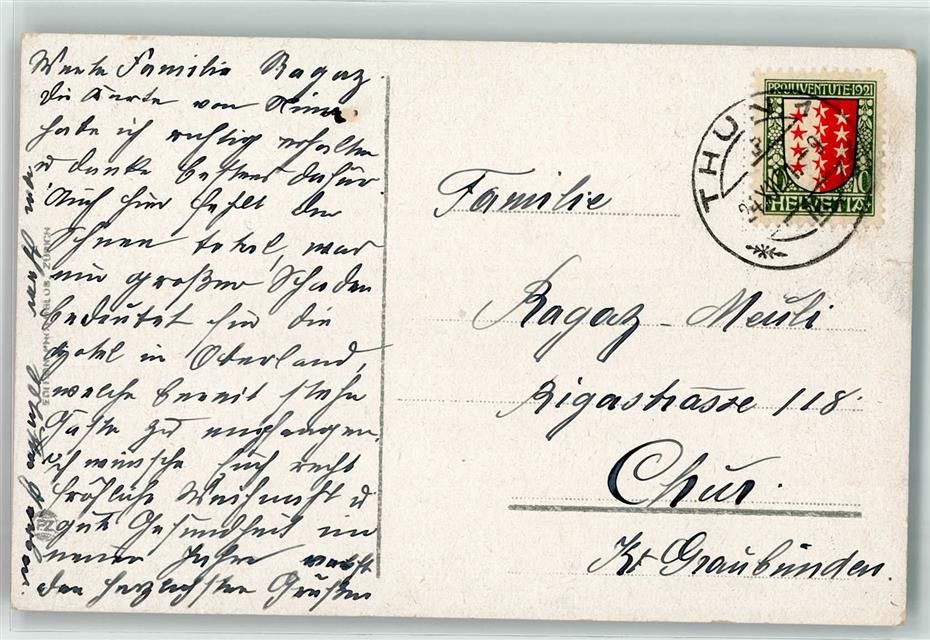 Werte Familie Ragaz.
die Karte von Nina
habe ich richtig erhalten
u danke bestens dafür
Auch hier fehlt der
Schnee total, was
ein großer Schaden
bedeutet für die
Hotel in Oberland,
welche bereit stehn
Gäste zu empfangen.
ich wünsche Euch recht
fröhliche Weihnacht u
gute Gesundheit im
neuen Jahre nebst
den herzlichsten Grüßen
von
PROJUVENTUTE·1921
10
HELVETIA
THUN
Familie
Ragaz-Meuli
Rigastrasse 118
Chur.
Kt Graubünden.